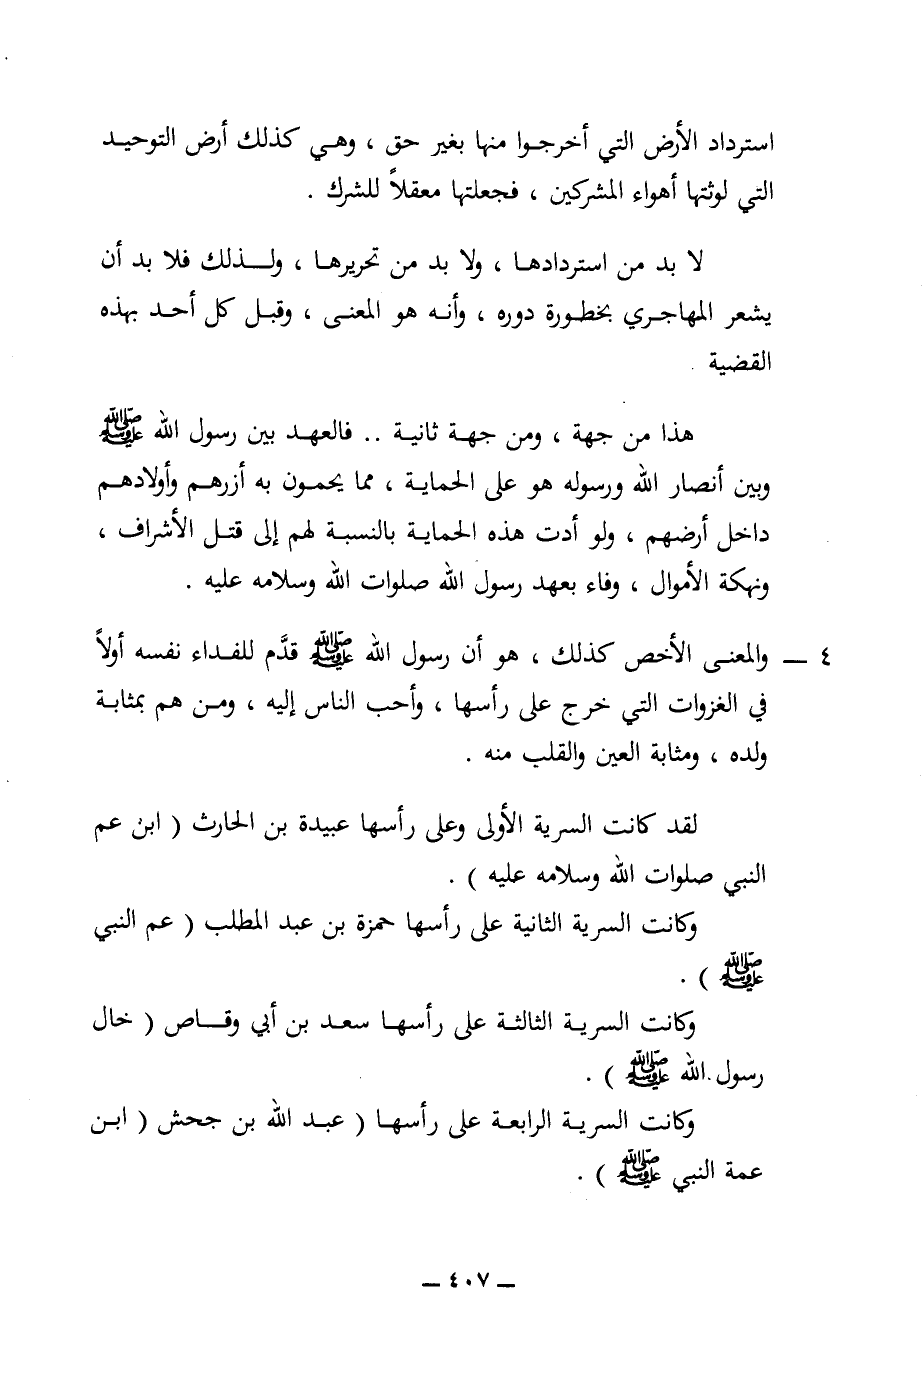 استرداد الأرض التي أخرجوا منها بغير حق ، وهي كذلك أرض التوحيد
التي لوثتها أهواء المشركين ، فجعلتها معقلاً للشرك .
لا بد من استردادها ، ولا بد من تحريرها ، ولذلك فلا بد أن
يشعر المهاجري بخطورة دوره ، وأنه هو المعنى ، وقبل كل أحد بهذه
القضية .
هذا من جهة ، ومن جهة ثانية .. فالعهد بين رسول الله ﷺ
وبين أنصار الله ورسوله هو على الحماية ، مما يحمون به أزرهم وأولادهم
داخل أرضهم ، ولو أدت هذه الحماية بالنسبة لهم إلى قتل الأشراف ،
ونهكة الأموال ، وفاء بعهد رسول الله صلوات الله وسلامه عليه .
٤ ــ والمعنى الأخص كذلك ، هو أن رسول الله ﷺ قدَّم للفداء نفسه أولاً
في الغزوات التي خرج على رأسها ، وأحب الناس إليه ، ومن هم بمثابة
ولده ، ومثابة العين والقلب منه .
لقد كانت السرية الأولى وعلى رأسها عبيدة بن الحارث ( ابن عم
النبي صلوات الله وسلامه عليه ) .
وكانت السرية الثانية على رأسها حمزة بن عبد المطلب ( عم النبي
ﷺ ) .
وكانت السرية الثالثة على رأسها سعد بن أبي وقاص ( خال
رسول الله ﷺ ) .
وكانت السرية الرابعة على رأسها ( عبد الله بن جحش ( ابن
عمة النبي ﷺ ) .
ــ ٤٠٧ ــ